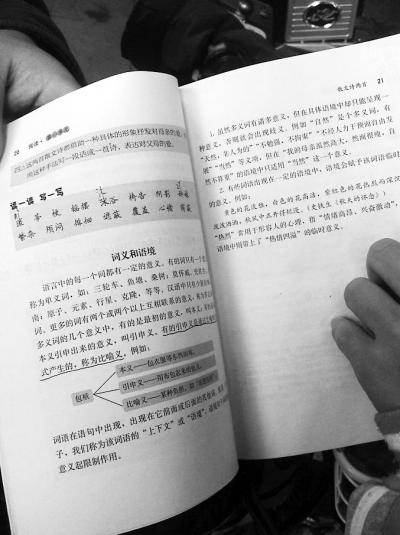 20 阅读·
四 这两首散文诗都借助一种具体的形象抒发对母亲的爱
用这样手法写一段话或一首诗,表达对父母的爱。
读一读 写一写
沐浴 祷告
繁杂 顾问 遮蔽 覆盖 心绪
词义和语境
语言中的每一个词都有一定的意义。有的词只有一个意
称为单义词,如:三轮车、鱼塘、桑树;莫怀戚、
南;原子、元素、行星、克隆,等等。汉语中只有少
词。更多的词有两个或两个以上互相联系的意义,称为多义
多义词的几个意义中,有的是最初的意义,叫本义;
本义引申出来的意义,叫引申义;有的引申义是通过
式产生的,称为比喻义。例如:
本义——包衣服等东西的
包袱 引申义——用布包起来的
比喻义——某种负担,如
词语在语句中出现,出现在它前面或后面的
子,我们称为该词语的“上下文”或“语境”。
意义起限制作用。
散文诗两首 21
1. 虽然多义词有诸多意义,但在具体语境中却只能呈现一
种意义,否则就会出现歧义。例如“自然”是个多义词,有
“天然,非人为的”“不勉强,不拘束”“不经人力干预而自由发
展”“当然”等义项,但在“我的母亲虽然高大,然而很瘦,自
然不算重”的语境中只适用“当然”这一个意义。
2. 有的词语出现在一定的语境中,语境会赋予该词语临时
的意义。例如:
黄色的花淡雅,白色的花高洁,紫红色的花热烈而深沉,
泼泼洒洒,秋风中正开得烂漫。(史铁生《秋天的怀念》)
“热烈”常用于形容人的心理,指“情绪高昂,兴奋激动”,
语境中则带上了“热情四溢”的临时意义。